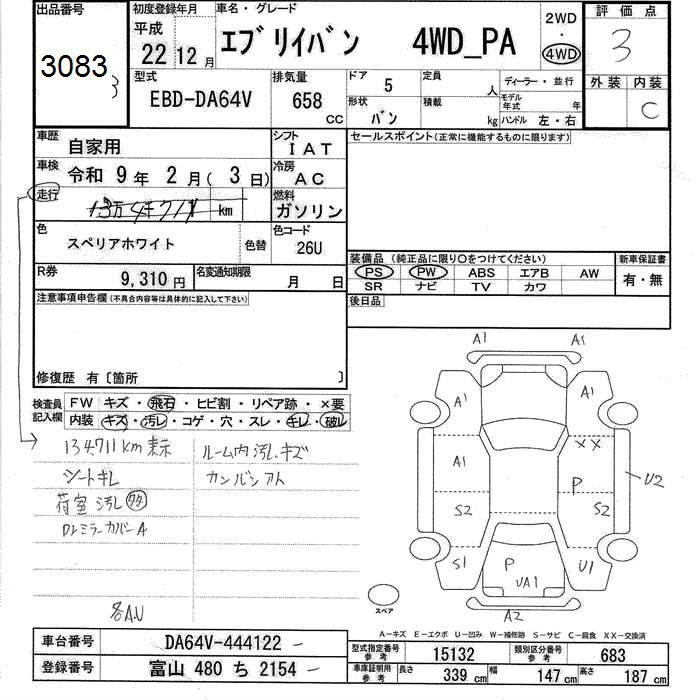 出品番号 初度登録年月 車名・グレード 2WD 評価点
平成 ・
22 年 12 月 エブリイバン 4WD_PA 4WD 3
3083
3
型式 排気量 ドア 5 定員 人 ディーラー・並行 外装 内装
EBD-DA64V 658 cc 形状 バン 積載 kg モデル年式 年 C
ハンドル 左・右
車歴 自家用 シフト IAT セールスポイント(正常に機能するものに限ります)
車検 令和 9 年 2 月( 3 日) 冷房 AC
走行 13万4千711 km 燃料 ガソリン
色 スペリアホワイト 色替 色コード 26U
装備品(純正品に限り○をつけてください) 新車保証書
PS PW ABS エアB AW 有・無
SR ナビ TV カワ
R券 9,310 円 名変通知期限 月 日
後日品
注意事項申告欄(不具合内容等は具体的に記入して下さい)
修復歴 有〔箇所 〕
検査員記入欄 FW キズ・飛石・ヒビ割・リペア跡・×要
内装 キズ・汚レ・コゲ・穴・スレ・キレ・破レ
134711km表示 ルーム内汚レ.キズ
シートキレ カンバンアト
荷室汚レ 多々
Drミラーカバー A
各AU
A1 A1
A1 A1
A1 XX
P U2
S2 S2
S1 P U1
UA1
A2
スペア
A－キズ E－エクボ U－凹み W－補修跡 S－サビ C－腐食 XX－交換済
車台番号 DA64V-444122
型式指定番号 参考 15132 類別区分番号 参考 683
登録番号 富山 480 ち 2154
車庫証明用 参考 長さ 339 cm 幅 147 cm 高さ 187 cm